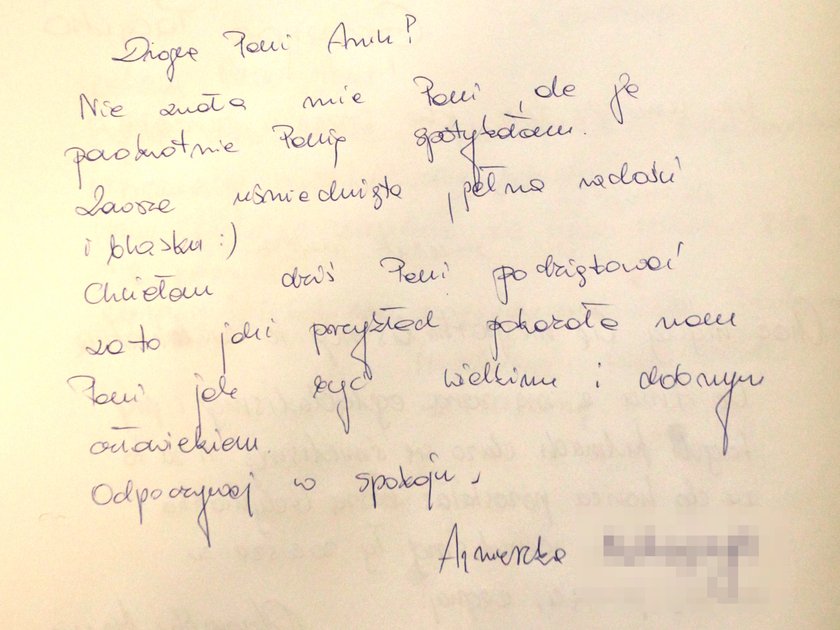 Droga Pani Aniu!
Nie znała mnie Pani, ale ja
parokrotnie Panią spotykałam.
Zawsze uśmiechnięta, pełna radości
i blasku :)
Chciałam dziś Pani podziękować
za to jaki przykład pokazała nam
Pani jak żyć wielkim i dobrym
człowiekiem
Odpoczywaj w spokoju.
Agnieszka